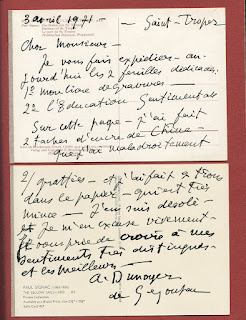 3 avril 1971 — — Saint-Tropez
Cher Monsieur —
Je vous fais expédier — au-
jourd'hui les 2 feuilles dédicacées.
1º mon livre de gravures
2º l'Education Sentimentale
Sur cette page — j'ai fait
2 taches d'encre de Chine —
que j'ai maladroitement
2/ grattées — et j'ai fait 2 trous
dans le papier — qui est très
mince — J'en suis désolé —
et je m'en excuse vivement —
et vous prie de croire à mes
sentiments très distingués —
et les meilleurs —
A. Dunoyer
de Segonzac
PAUL SIGNAC (1863-1935)